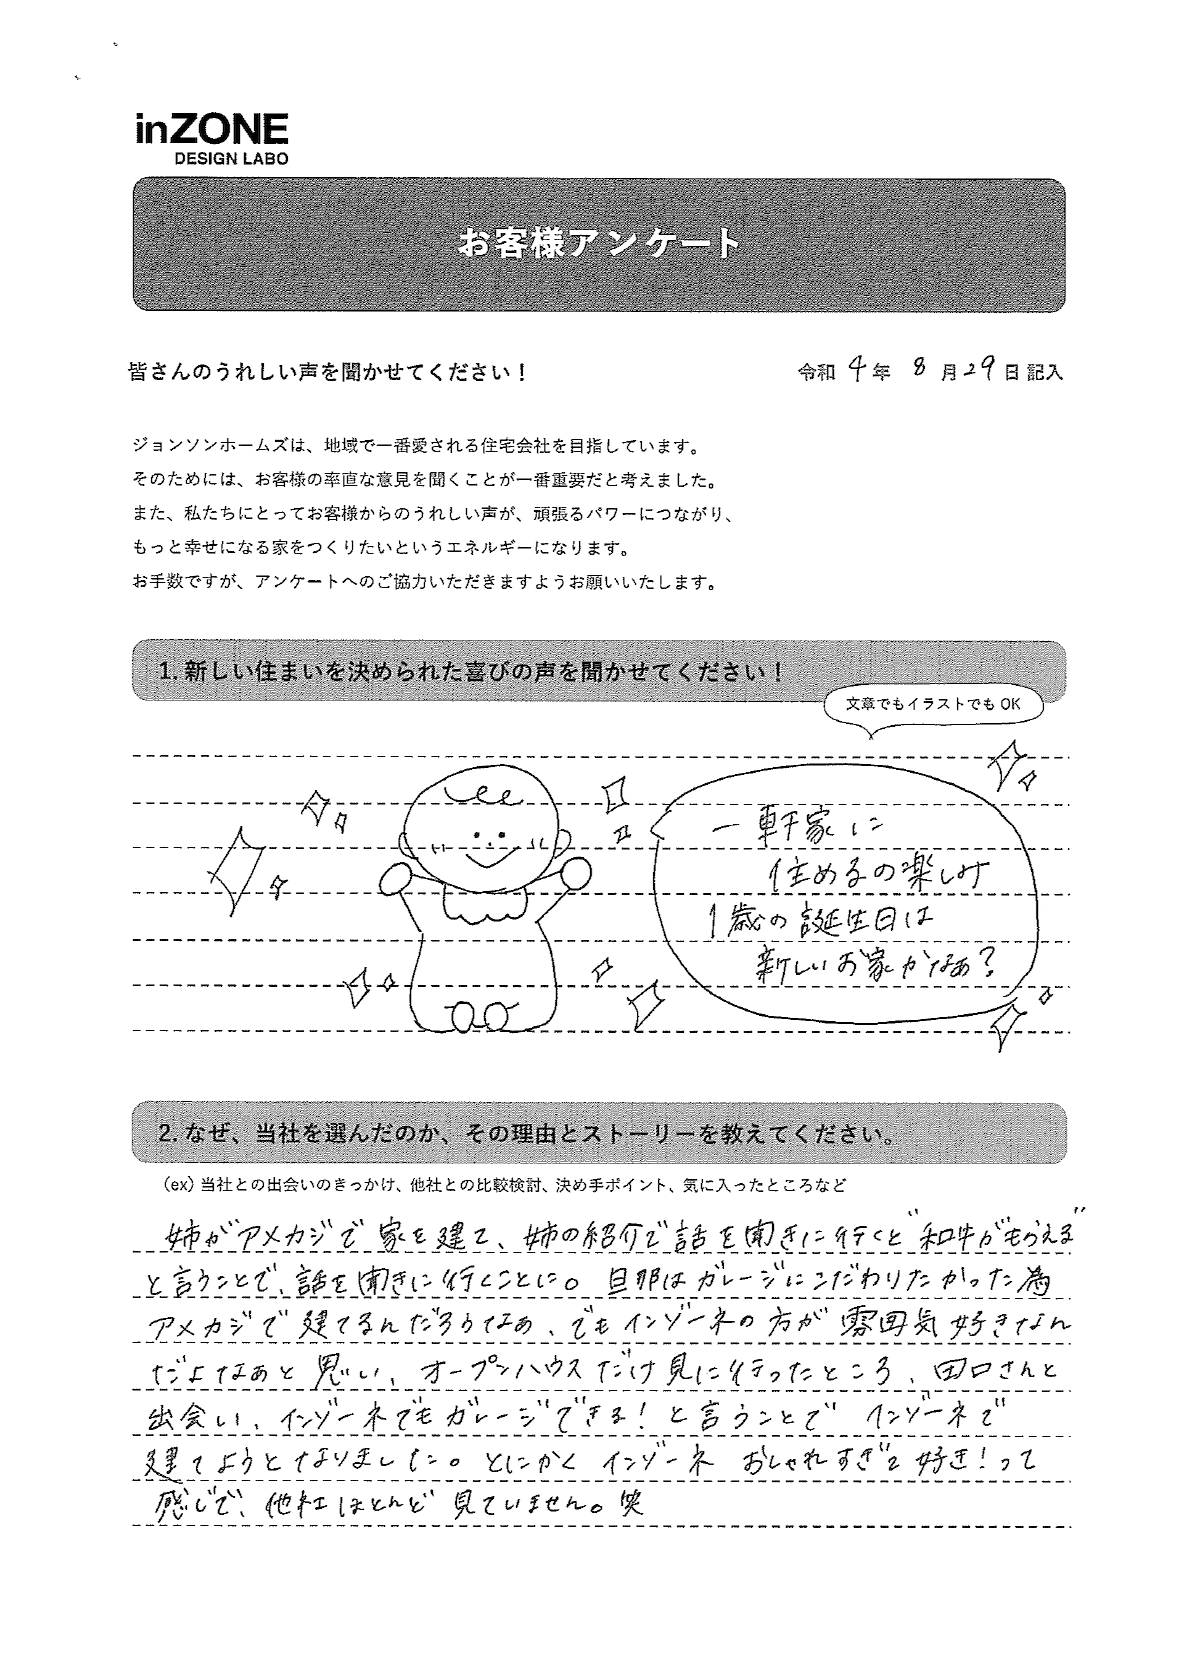 inZONE
DESIGN LABO
お客様アンケート
皆さんのうれしい声を聞かせてください！
令和 4年 8月29日 記入
ジョンソンホームズは、地域で一番愛される住宅会社を目指しています。
そのためには、お客様の率直な意見を聞くことが一番重要だと考えました。
また、私たちにとってお客様からのうれしい声が、頑張るパワーにつながり、
もっと幸せになる家をつくりたいというエネルギーになります。
お手数ですが、アンケートへのご協力いただきますようお願いいたします。
1. 新しい住まいを決められた喜びの声を聞かせてください！
文章でもイラストでも OK
一軒家に
住めるの楽しみ
1歳の誕生日は
新しいお家かなぁ？
2. なぜ、当社を選んだのか、その理由とストーリーを教えてください。
（ex）当社との出会いのきっかけ、他社との比較検討、決め手ポイント、気に入ったところなど
姉がアメカジで家を建て、姉の紹介で話を聞きに行くと"和牛がもらえる"
と言うことで、話を聞きに行くことに。旦那はガレージにこだわりたかった為
アメカジで建てるんだろうなぁ、でもインゾーネの方が雰囲気好きなん
だよなぁと思い、オープンハウスだけ見に行ったところ、田口さんと
出会い、インゾーネでもガレージできる！と言うことで インゾーネで
建てようとなりました。とにかく インゾーネ おしゃれすぎて好き！って
感じで、他社ほとんど見ていません。笑